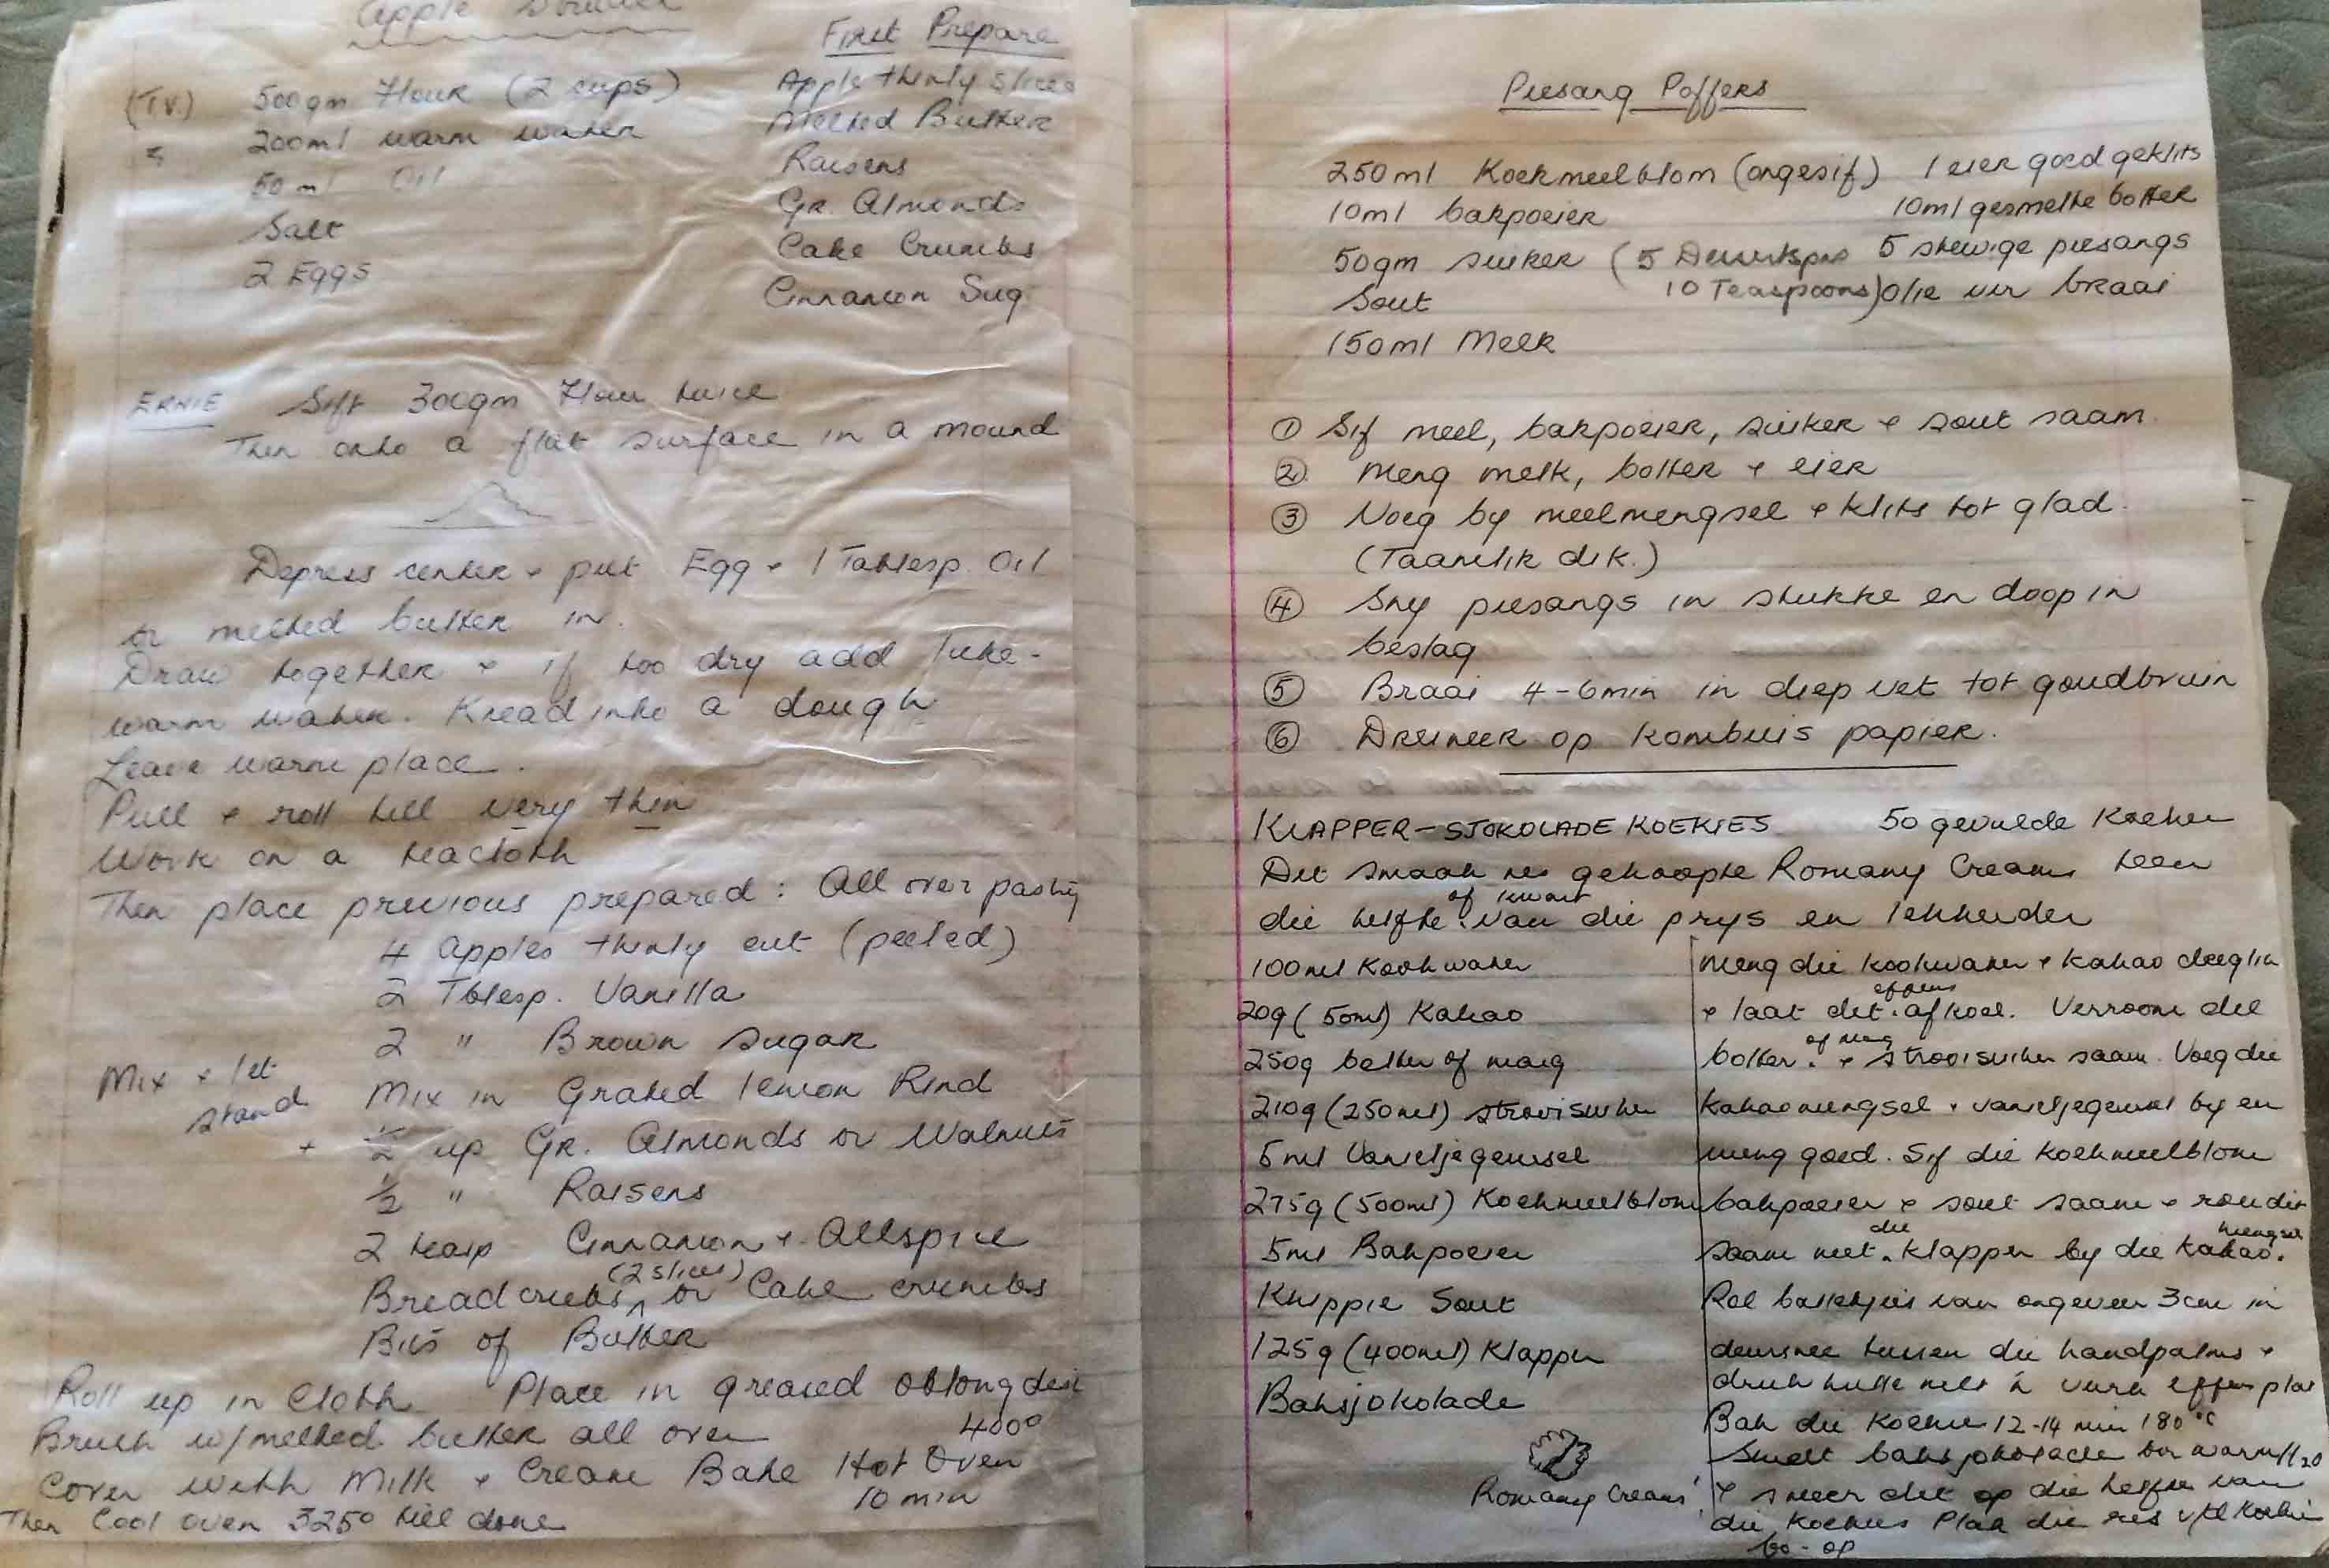 Apple Strudel
First Prepare
(T.V.) 500gm Flour (2 cups)
200ml warm water
50 ml Oil
Salt
2 Eggs
Apple thinly sliced
Melted Butter
Raisens
Gr. Almonds
Cake Crumbs
Cinnamon Sug.
ERNIE Sift 300gm Flour twice
Then onto a flat surface in a mound
Depress center + put Egg + 1 Tablesp. Oil
or melted butter in.
Draw together + if too dry add luke-
warm water. Knead into a dough
Leave warm place.
Pull + roll till very thin
Work on a teacloth
Then place previous prepared: All over pastry
4 apples thinly cut (peeled)
2 Tblesp. Vanilla
2 " Brown sugar
Mix + let
stand
Mix in Grated lemon Rind
+ 1/2 cup Gr. Almonds or Walnuts
1/2 " Raisens
2 teasp Cinnamon + Allspice
(2 slices)
Bread crubs or Cake crumbs
Bits of Butter
Roll up in Cloth Place in greased oblong dish
Brush w/melted butter all over 400°
Cover with Milk + Cream Bake Hot Oven
10 min
Then Cool oven 325° till done
Piesang Poffers
250ml Koekmeelblom (ongesif)
10ml bakpoeier
50gm suiker (5 Dessertspns
10 Teaspoons)
Sout
150ml Melk
1 eier goed geklits
10ml gesmelte botter
5 stewige piesangs
Olie vir braai
① Sif meel, bakpoeier, suiker + sout saam.
② Meng melk, botter + eier
③ Voeg by meelmengsel + klits tot glad.
(Taamlik dik.)
④ Sny piesangs in stukke en doop in
beslag
⑤ Braai 4-6min in diep vet tot goudbruin
⑥ Dreineer op kombuis papier.
KLAPPER-SJOKOLADE KOEKIES 50 gevulde Koekies
Dit smaak nes gekoopte Romany Creams teen
of kwart
die helfte van die prys en lekkerder
100ml Kookwater
20g (50ml) Kakao
250g botter of marg
210g (250ml) strooisuiker
5ml Vanieljegeursel
275g (500ml) Koekmeelblom
5ml Bakpoeier
Knippie Sout
125g (400ml) Klapper
Baksjokolade
Romany Creams
Meng die kookwater + kakao deeglik
effens
+ laat dit afkoel. Verroom die
of marg
botter + strooisuiker saam. Voeg die
kakaomengsel + vanieljegeursel by en
meng goed. Sif die Koekmeelblom
bakpoeier + sout saam + roer dit
die mengsel
saam met klapper by die kakao.
Rol balletjies van ongeveer 3cm in
deursnee tussen die handpalms +
druk hulle met 'n vurk effens plat
Bak die Koekies 12-14 min 180°C
Smelt baksjokolade bor warm H20
+ smeer dit op die helfte van
die Koekies Plak die res v/d Koekies
bo-op